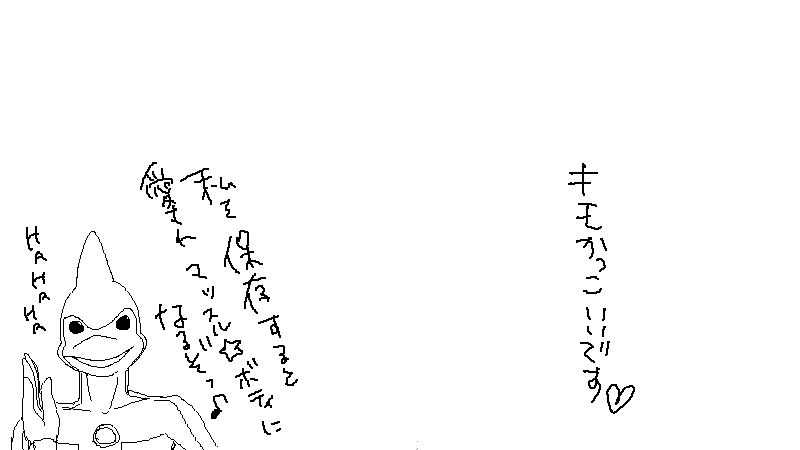 キモかっこいいです♡
私を保存すると
愛されマッスル☆ボディに
なるぞっ♪
HAHAHA